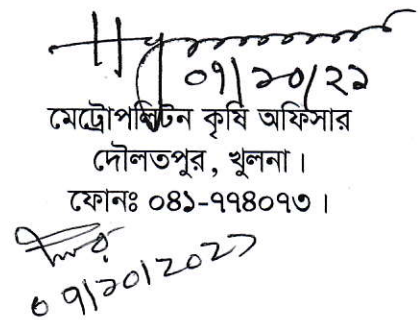 ০৭/১০/২১
মেট্রোপলিটন কৃষি অফিসার
দৌলতপুর, খুলনা।
ফোনঃ ০৪১-৭৭৪০৭৩।
০৭/১০/২০২১